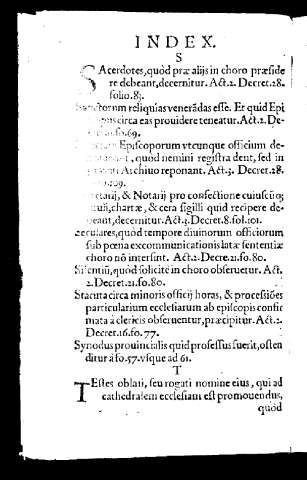 INDEX.
S
SAcerdotes, quòd præ alijs in choro præside
re debeant, decernitur. Act. 2. Decret. 28.
folio. 83.
Sanctorum reliquias venerādas esse. Et quid Epi
circa eas prouidere teneatur. Act. 2. De-
fo. 69.
Episcoporum vtcunque officium de-
, quòd nemini registra dent, sed in
Archiuo reponant. Act. 3. Decret. 28.
109.
& Notarij pro confectione cuiuscūq;
chartæ, & cera sigilli quid recipere de
beant, decernitur. Act. 3. Decret. 8. fol. 101.
Seculares, quòd tempore diuinorum officiorum
sub pœna excommunicationis latæ sententiæ
choro nō intersint. Act. 2. Decre. 21. fo. 80.
Silentiū, quòd solicitè in choro obseruetur. Act.
2. Decret. 21. fo. 80.
Statuta circa minoris officij horas, & processiōes
particularium ecclesiarum ab episcopis confir
mata à clericis obseruentur, præcipitur. Act. 2.
Decret. 16. fo. 77.
Synodus prouincialis quid professus fuerit, osten
ditur à fo. 57. vsque ad 61.
T
TEstes oblati, seu rogati nomine eius, qui ad
cathedralem ecclesiam est promouendus,
quòd